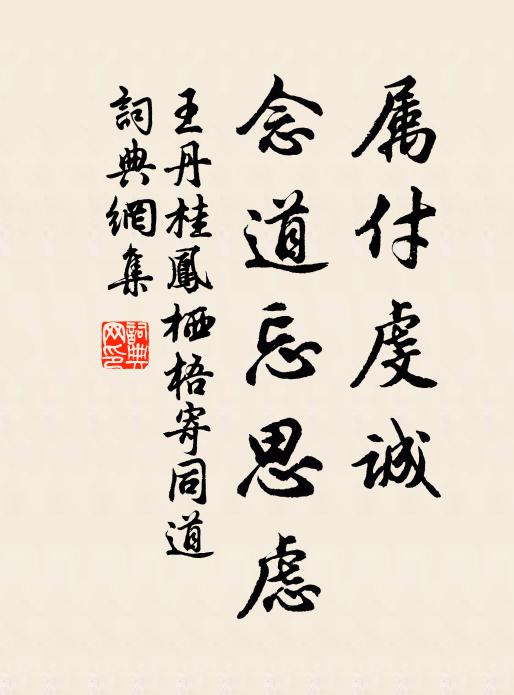 属付虔诚
念道忘思虑
王丹桂鳳栖梧寄同道
詞典網集
詞典网印